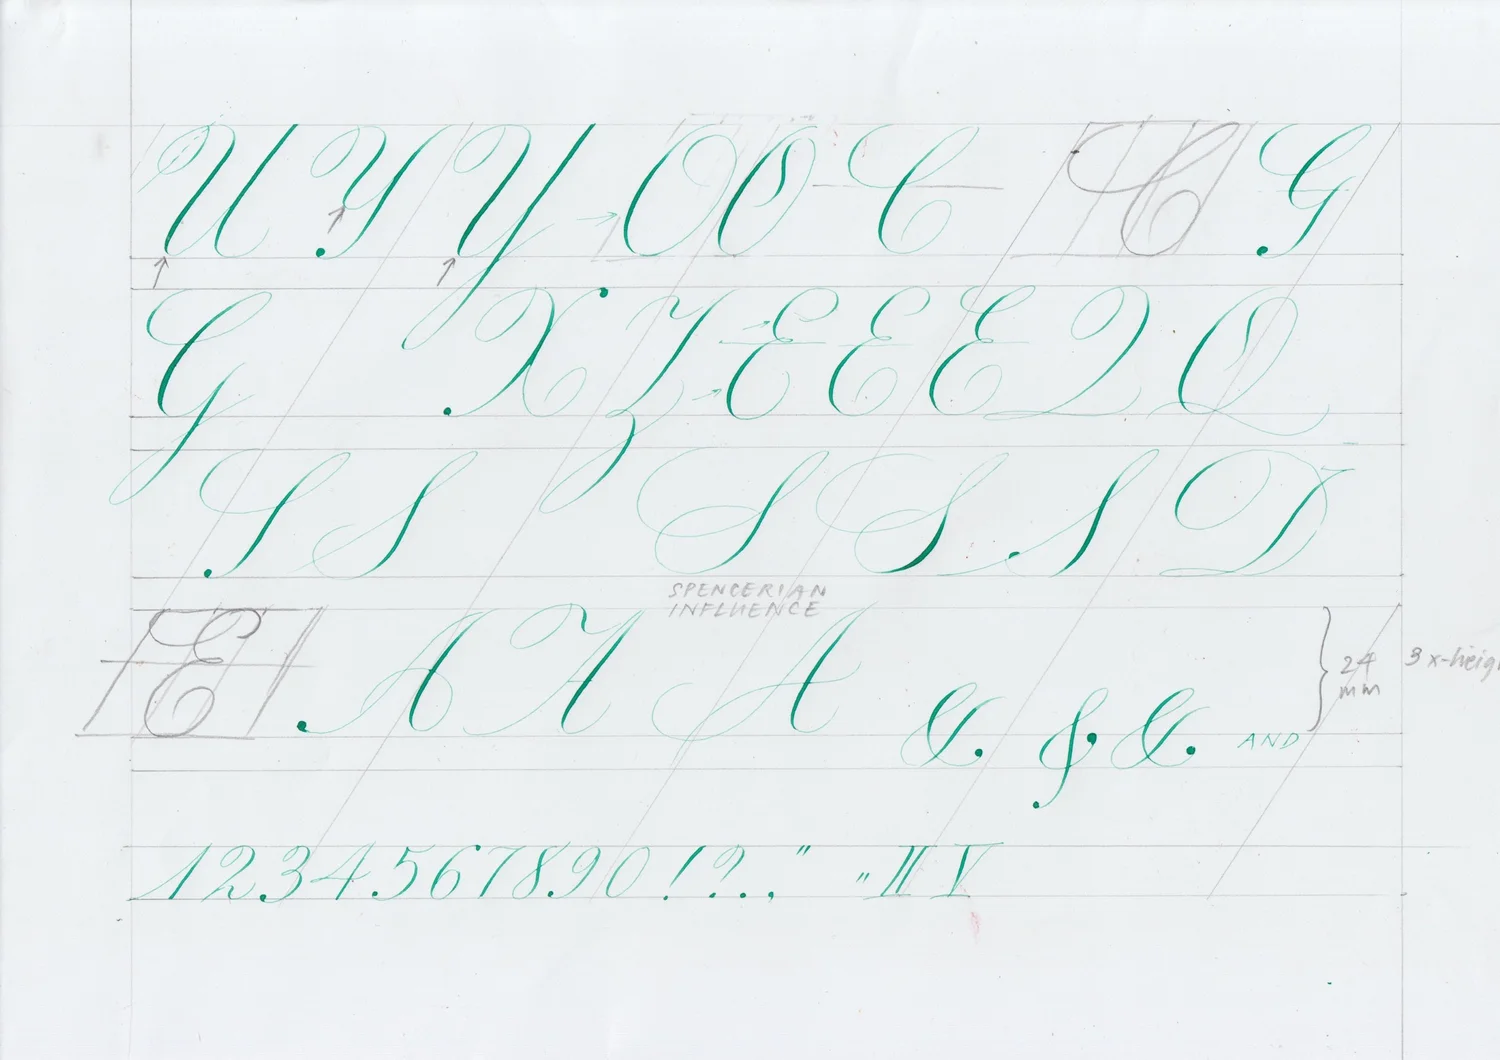 U Y Y O O C C G
G X Z E E E Q Q
S S S S S D
SPENCERIAN
INFLUENCE
E A A A & & & AND
24 mm 3 x-heig
1234567890!?., " „ II V